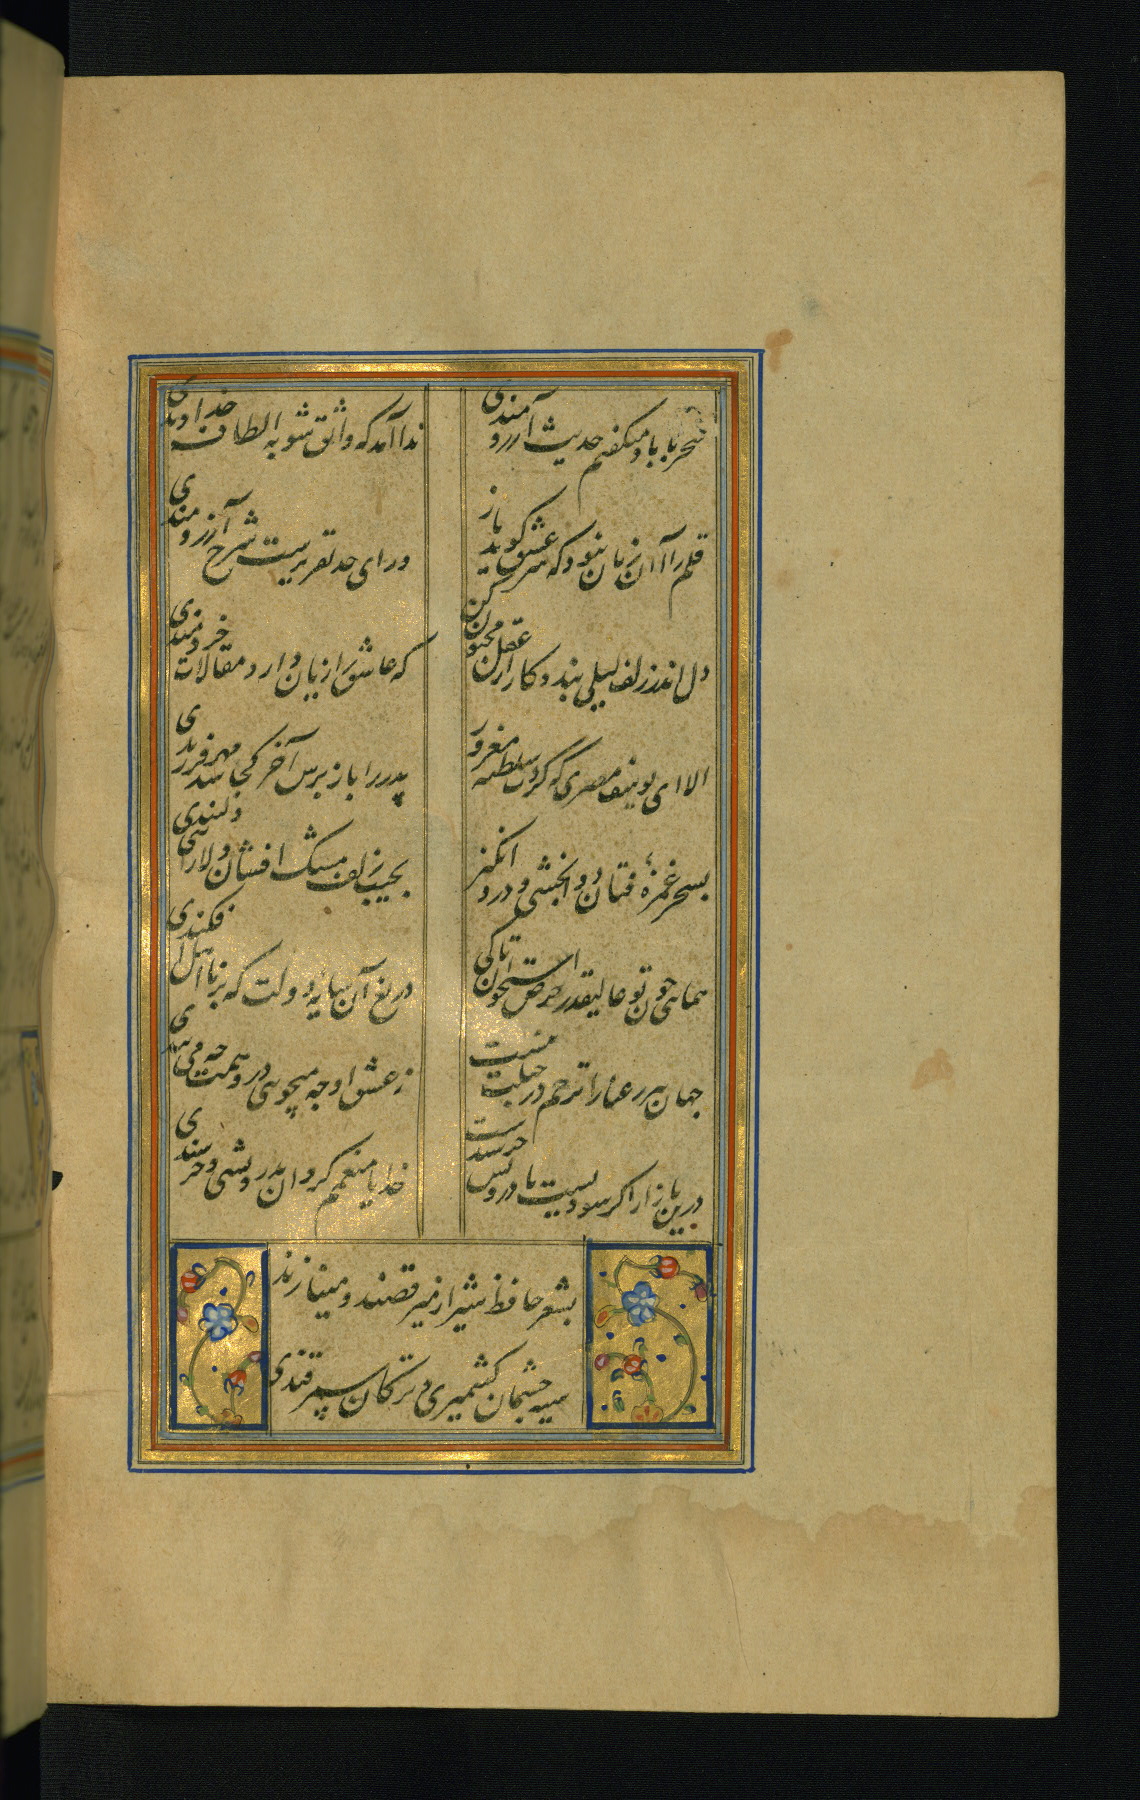 سحر با باد میگفتم حدیث آرزومندی
ندا آمد که واثق شو به الطاف خداوندی
قلم را آن زبان نبود که سر عشق گوید باز
ورای حد تقریرست شرح آرزومندی
دل اندر زلف لیلی بند و کار از عقل مجنون کن
که عاشق را زیان دارد مقالات خردمندی
الا ای یوسف مصری که کردت سلطنت مغرور
پدر را باز پرس آخر کجا شد مهر فرزندی
بسحر غمزهٔ فتان دوا بخشی و درد انگیز
بچین زلف مشک افشان دلارایی و دلبندی
همایی چون تو عالیقدر حرص استخوان تا کی
دریغ آن سایهٔ دولت که بر نااهل افکندی
جهان پیر رعنا را ترحم در جبلت نیست
ز عشق او چه میجویی درو همت چه می بندی
درین بازار اگر سودیست با درویش خرسندست
خدایا منعمم گردان بدرویشی و خرسندی
بشعر حافظ شیراز میرقصند و مینازند
سیه چشمان کشمیری و ترکان سمرقندی